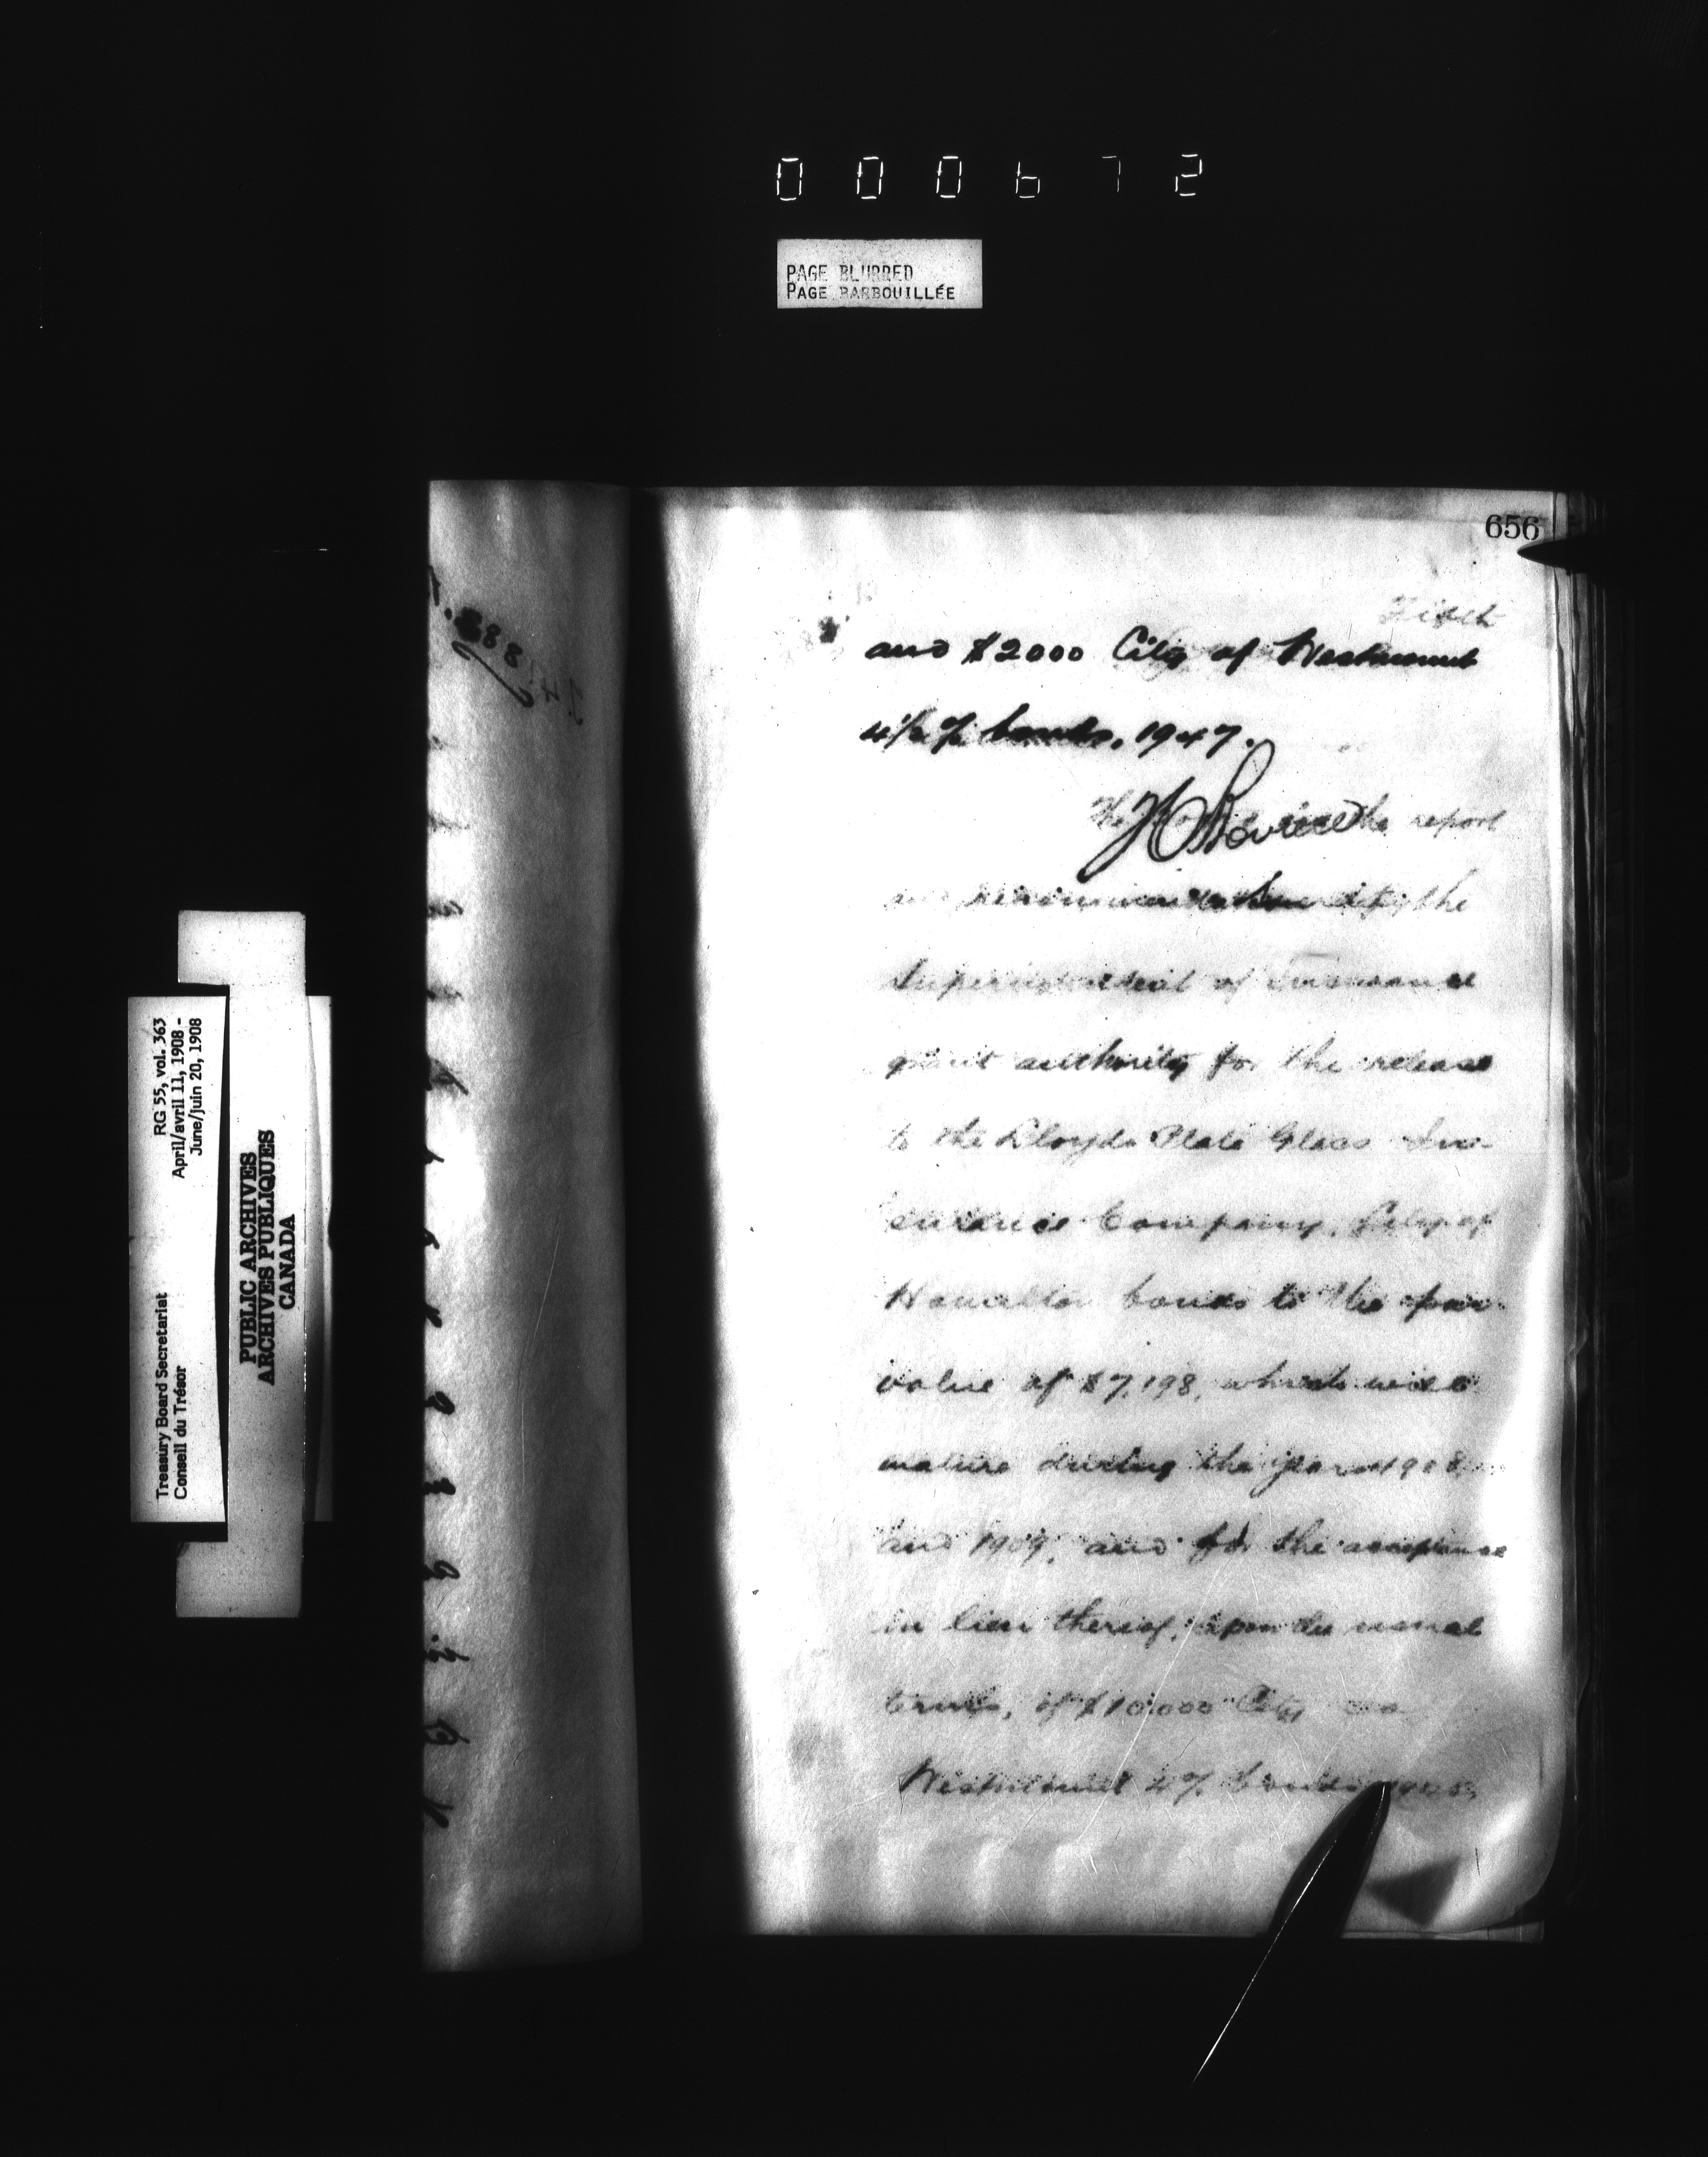 000672
PAGE BLURRED
PAGE BARBOUILLÉE
656
and $2000 City of Westmount
4½% bonds, 1947.
The the report
and recommendation of the
Superintendent of Insurance
grant authority for the release
to the Lloyds Plate Glass In-
surance Company, City of
Hamilton bonds to the par
value of $7,198, which will
mature during the years 1908
and 1909, and for the acceptance
in lieu thereof, upon the usual
terms, of $10.000 City
Westmount 4% bonds
RG 55, vol. 363
April/avril 11, 1908 -
June/juin 20, 1908
Treasury Board Secretariat
Conseil du Trésor
PUBLIC ARCHIVES
ARCHIVES PUBLIQUES
CANADA